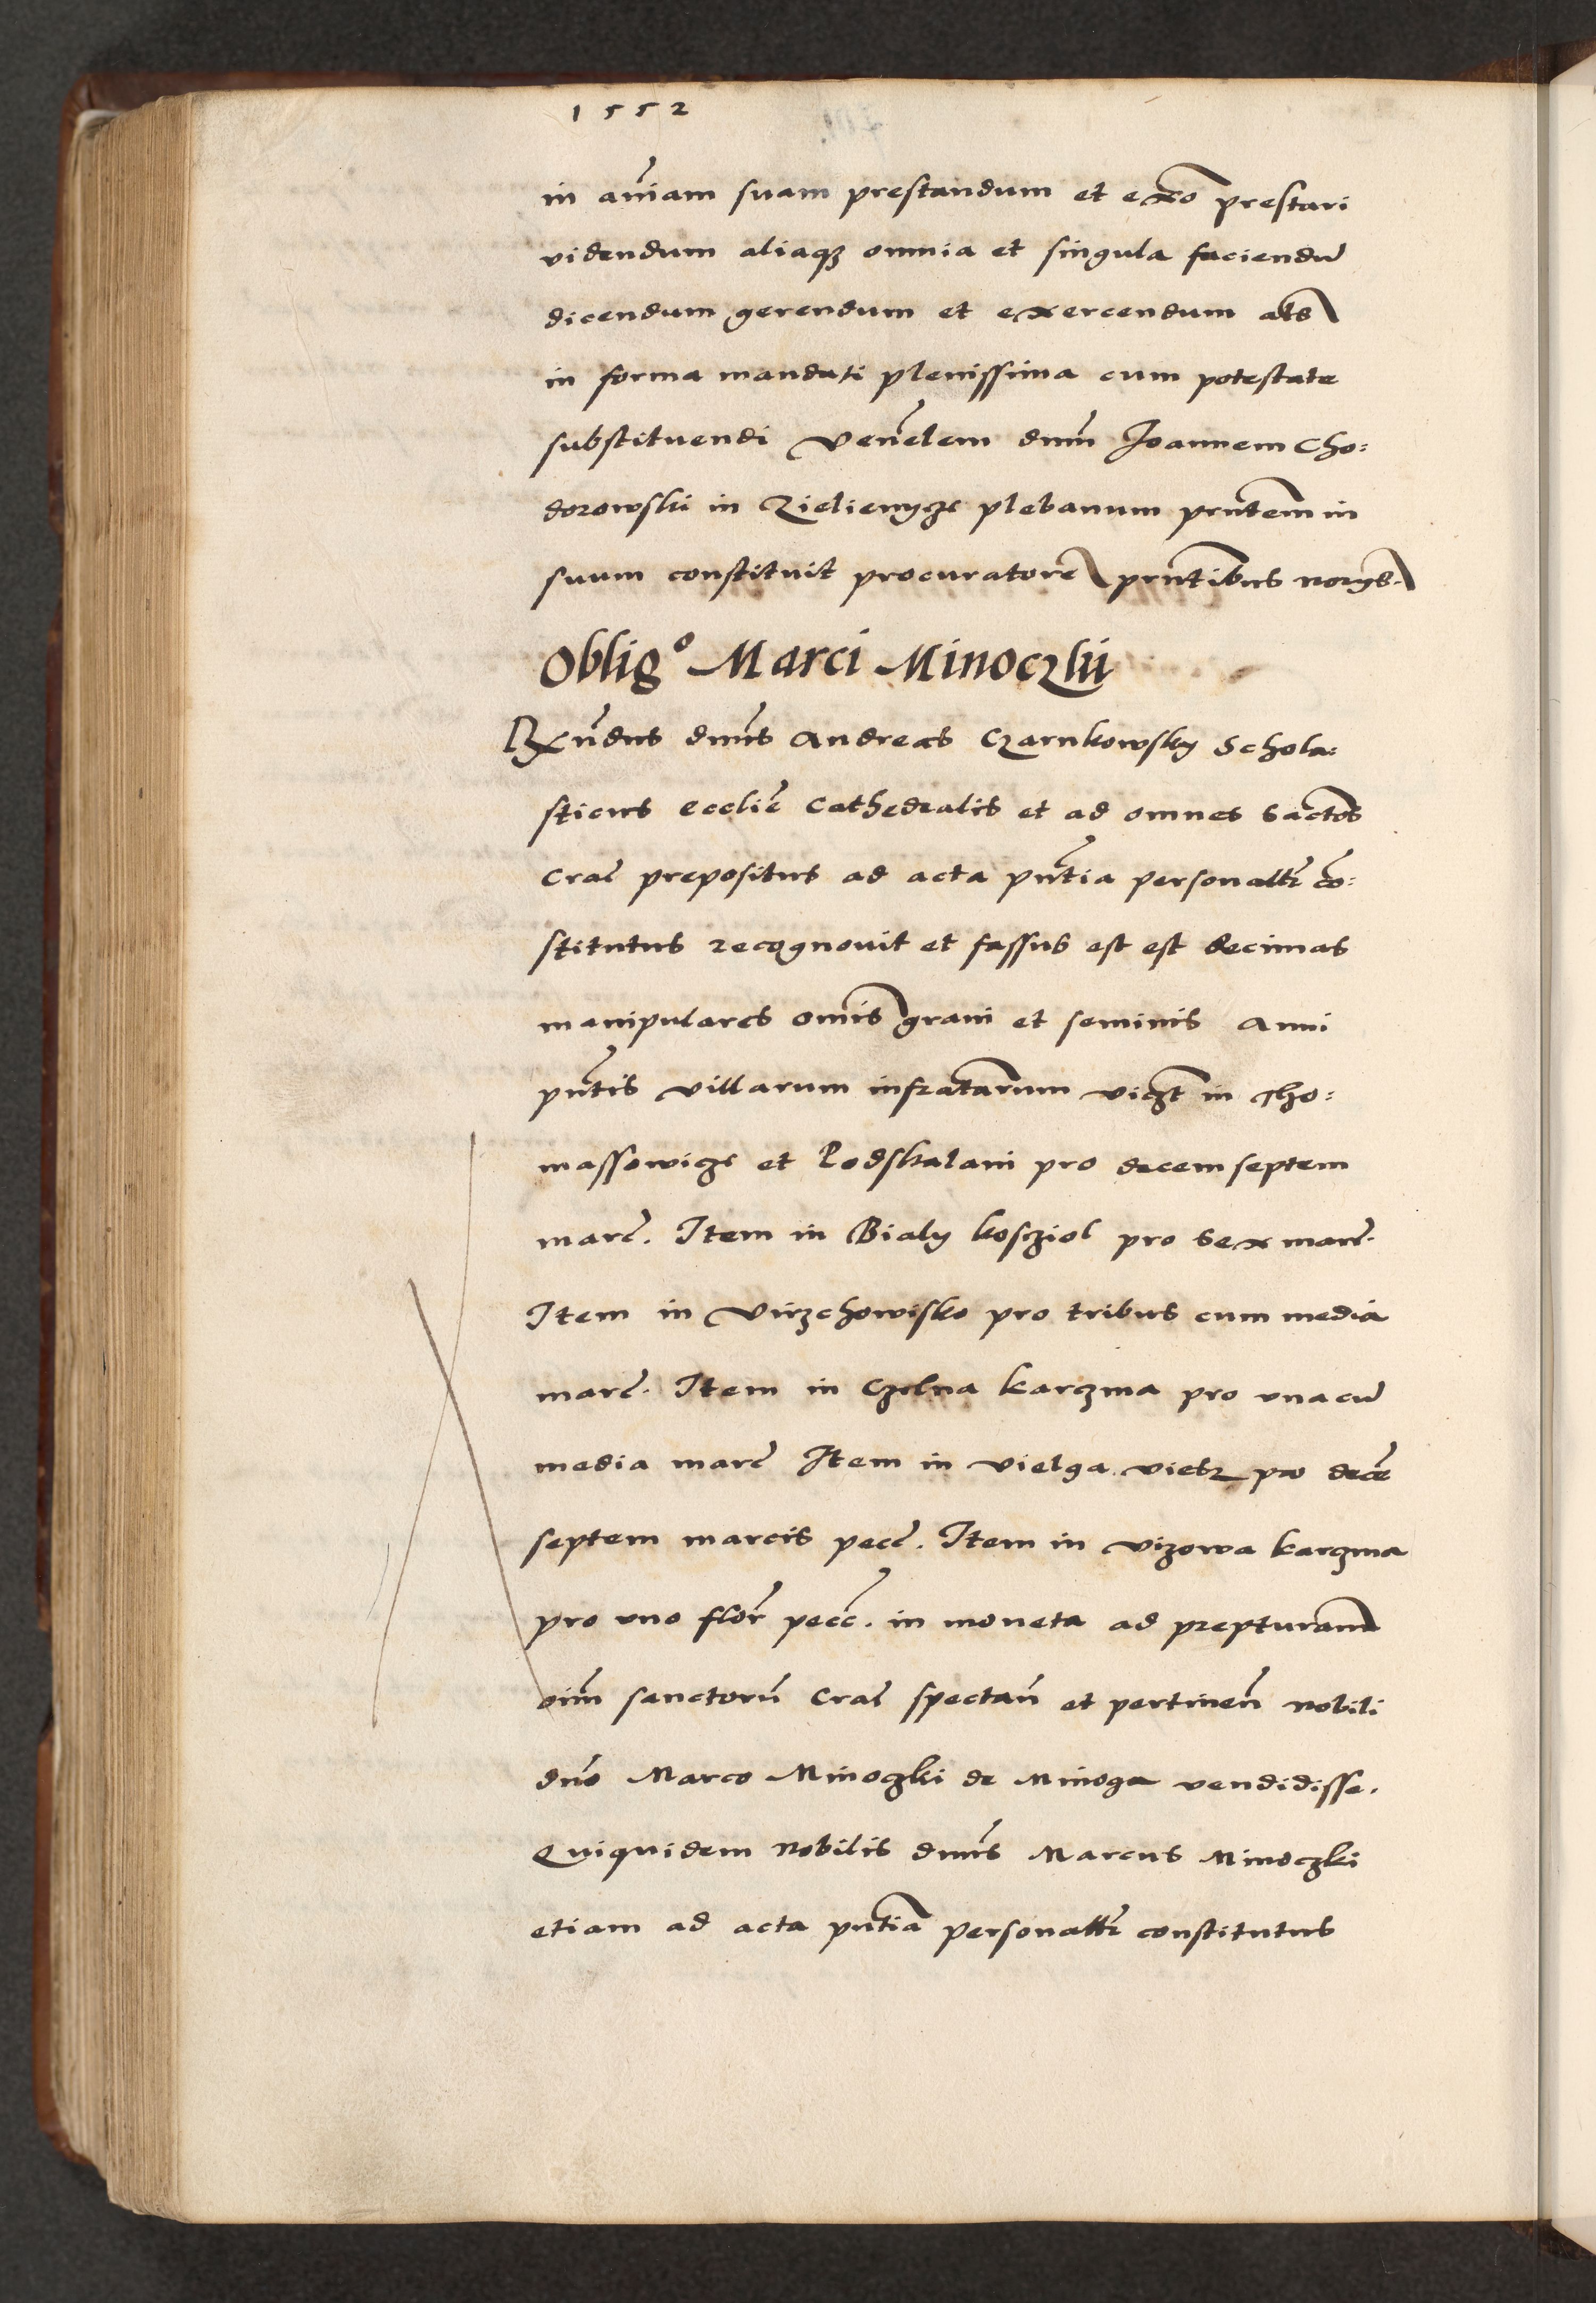 1552
in aniam suam prestandum et exco prestari
videndum aliaqz omnia et singula faciendu
dicendum gerendum et exercendum als
in forma mandati plenissima cum potestate
substituendi Venelem dnm Joannem Cho:
dorowski in Zielienycze plebanum prntem in
suum constituit procuratore prntibus norys.
Oblig° Marci Minoczki
Rndus dnus Andreas Czarnkowsky Schola:
sticus Ecclie Cathedralis et ad omnes sactos
Crac prepositus ad acta pntia personalr co:
stitutus recognouit et fassus est est decimas
manipulares omis grani et seminis Anni
pntis villarum infratarum viczt in Tho:
massowicze et Podskalani pro decem septem
marc. Item in Bialy kosziol pro sex marc.
Item in Virzchowisko pro tribus cum media
marc. Item in Czelna karczma pro una cu
media marc Item in Vielga viebz pro dece
septem marcis pecc. Item in Vizowa karczma
pro uno flor pecc. in moneta ad prepturam
oim sanctoru Crac spectan et pertinen Nobili
dno Marco Minoczki de Minoga vendidisse.
Quiquidem Nobilis dnus Marcus Minoczki
etiam ad acta pntia personalr constitutus